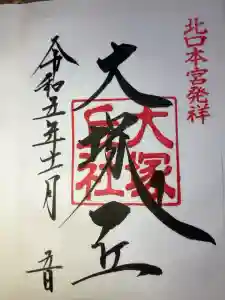 北口本宮発祥
大塚丘
大塚
丘社
令和五年十一月